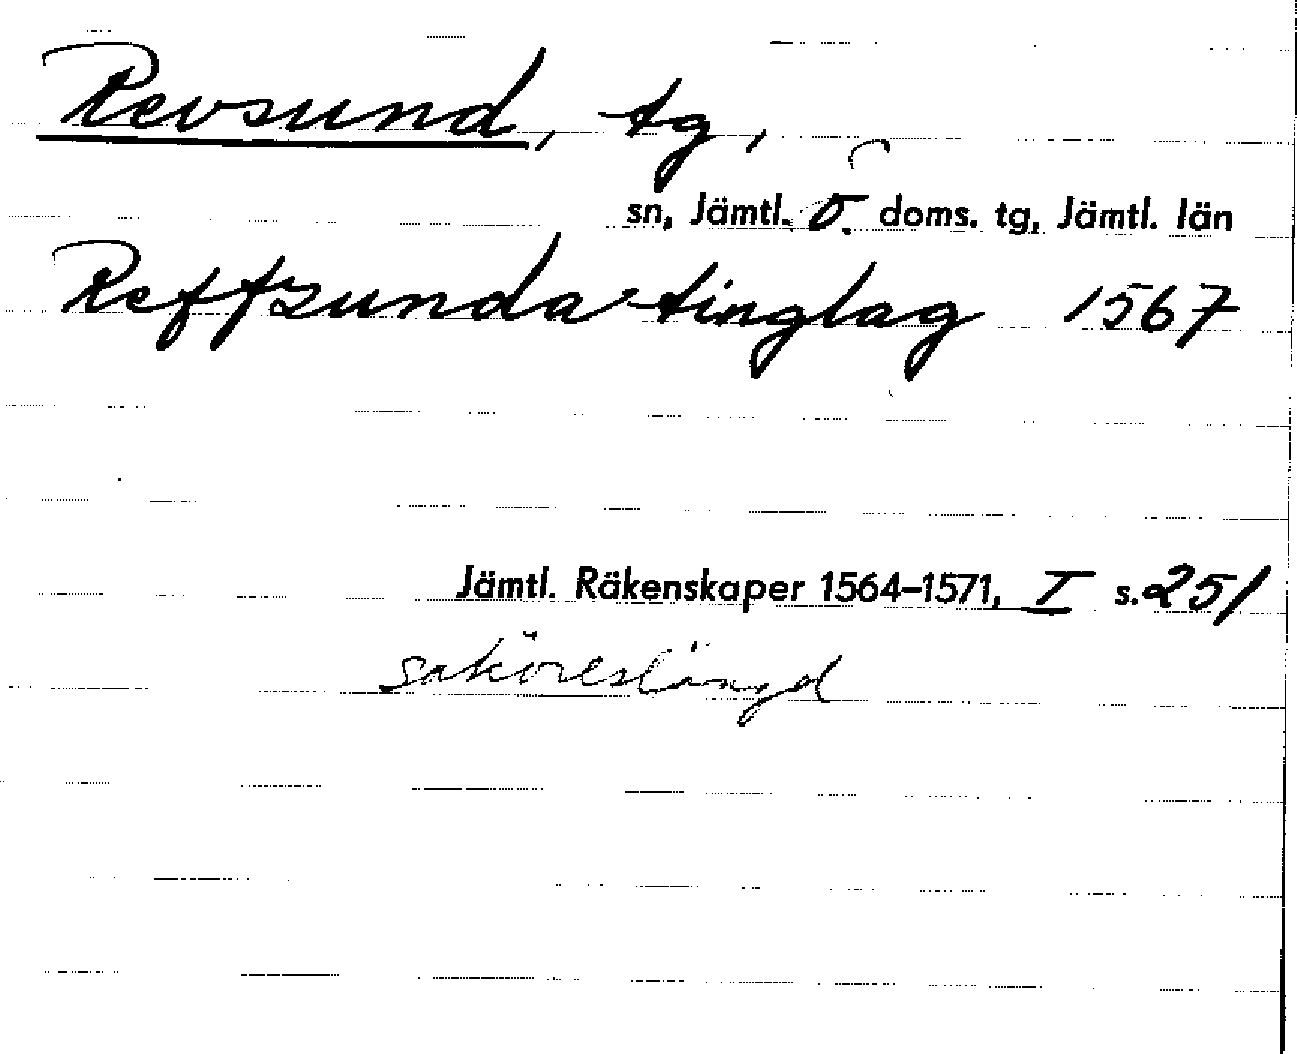 Revsund, tg,
sn, Jämtl. ö. doms. tg, Jämtl. län
Reffzunda tinglag 1567
Jämtl. Räkenskaper 1564–1571, I s. 251
saköreslängd